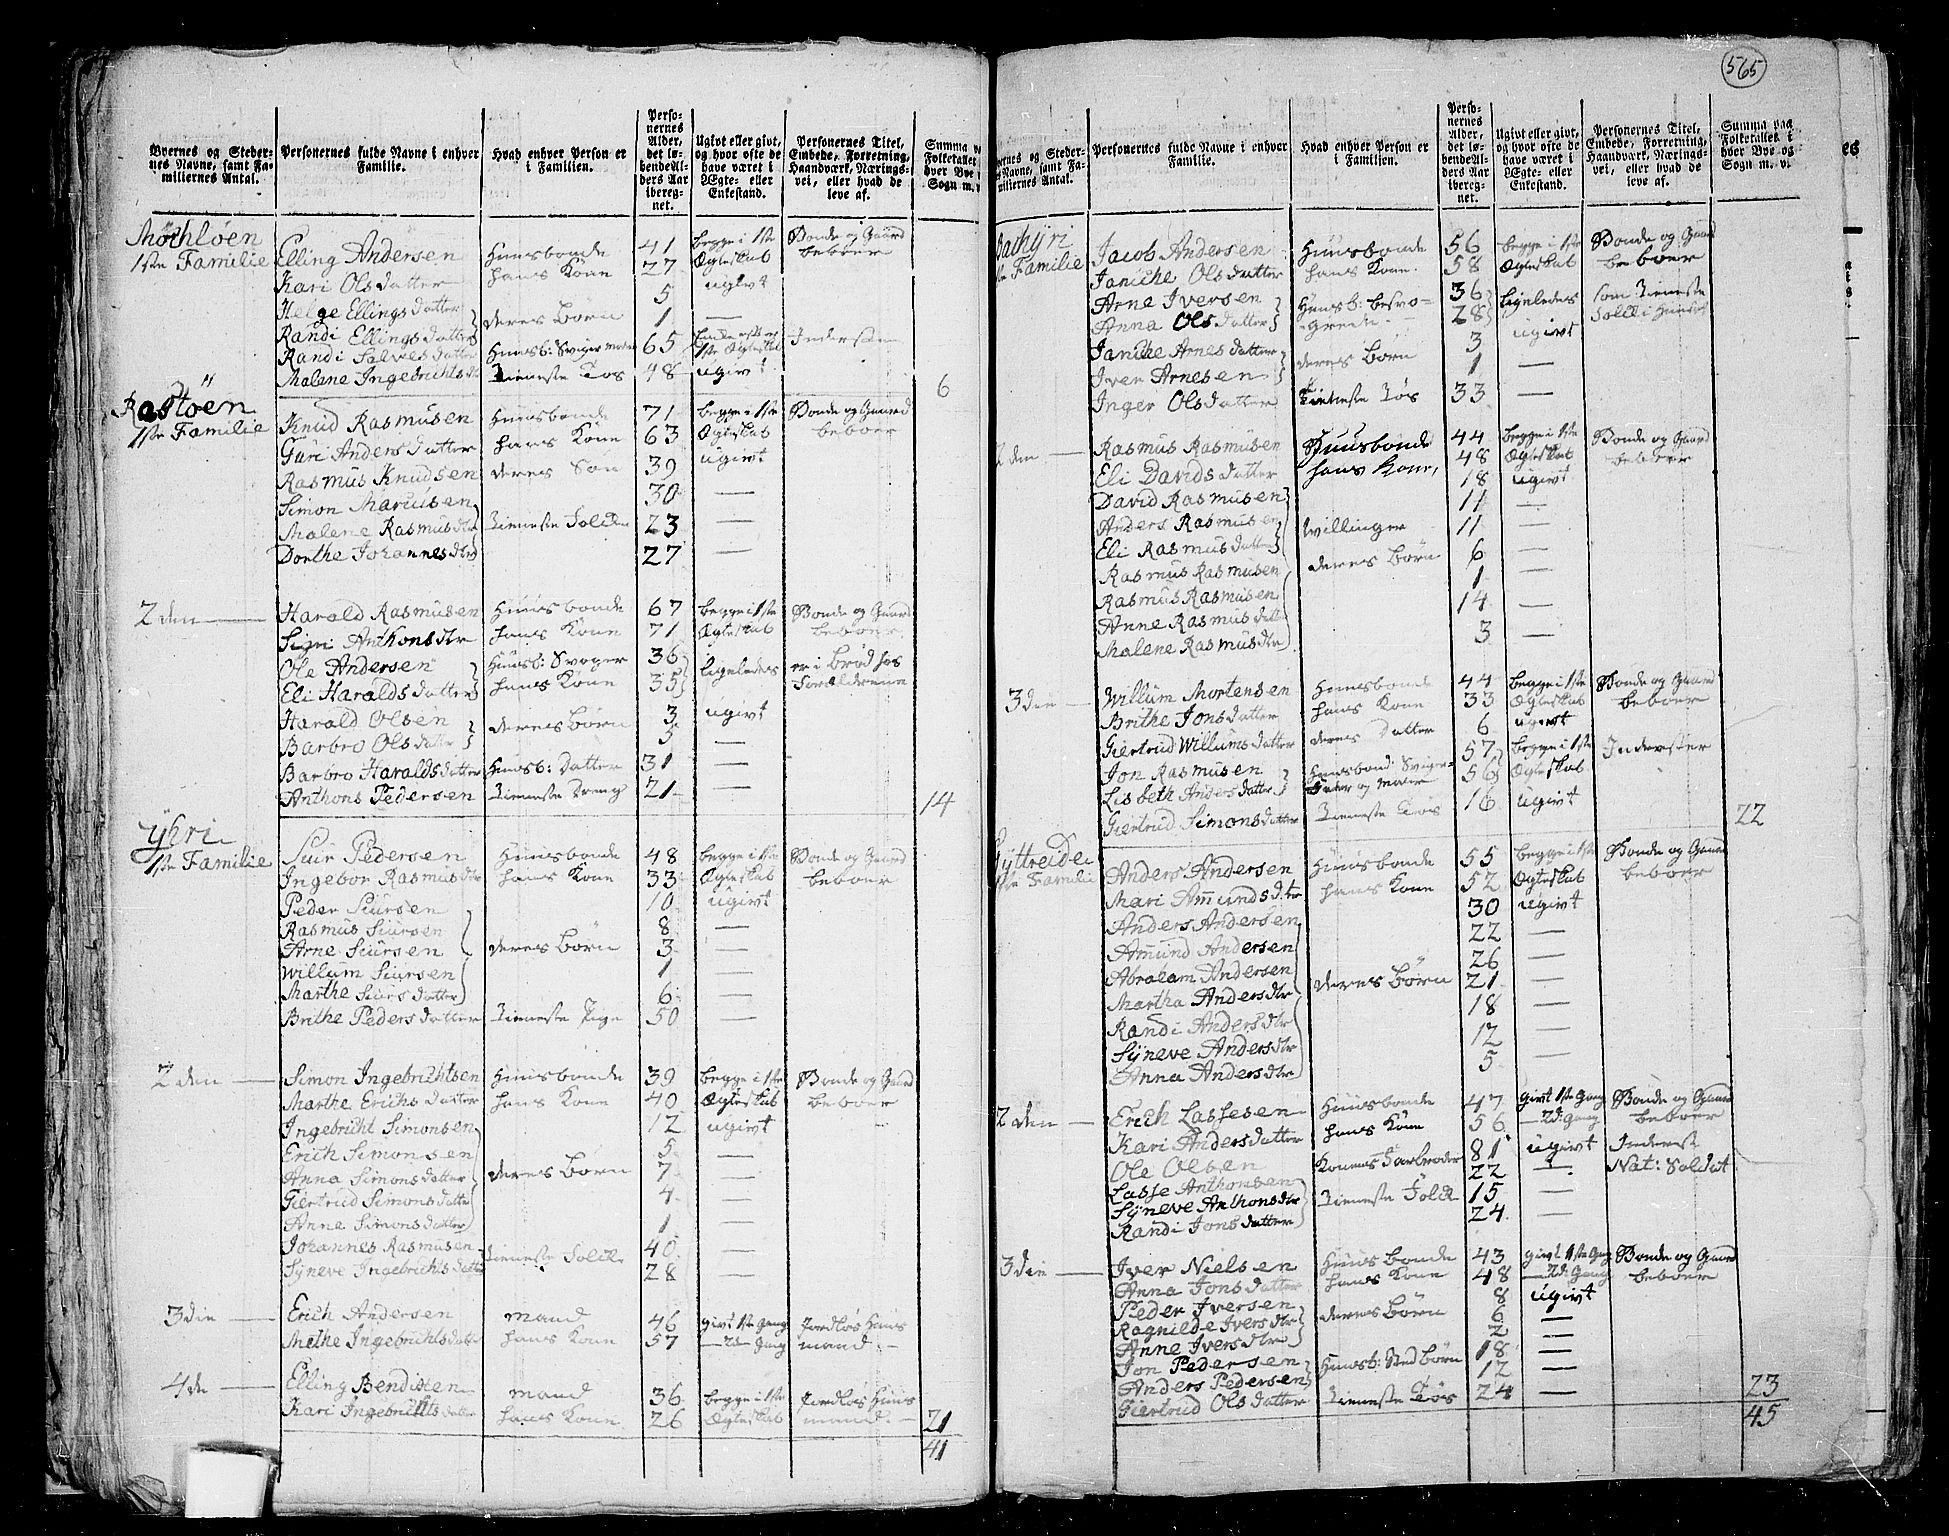 565
Byernes og Steder-
nes Navne, samt Fa-
miliernes Antal.
Personernes fulde Navne i enhver
Familie.
Hvad enhver Person er
i Familien.
Perso-
nernes
Alder,
det lø-
bende Al-
ders Aar
iberegn-
net.
Ugivt eller givt,
og hvor ofte de
have været i
Ægte- eller
Enkestand.
Personernes Titel,
Embede, Forretning,
Haandværk, Nærings-
vei, eller hvad de
leve af.
Summa
Folketallet
hver Bye
Sogn m.
Møchløen
1ste Familie Elling Andersen Huusbonde 41 begge i 1ste Bonde og Gaard
Kari Olsdatter hans Kone 27 Ægteskab beboer
Helge Ellingsdatter 5 ugivt
Randi Ellingsdatter deres Børn 1 —
Randi Salvesdatter Huusb: Sviger moder 65 1ste Ægteskab
Malene Ingebrichts Tieneste Tøs 48 ugivt
6
Rastøen
1ste Familie Knud Rasmusen Huusbonde 71 begge i 1ste Bonde og Gaard
Guri Andersdatter hans Kone 63 Ægteskab beboer
Rasmus Knudsen deres Søn 39 ugivt
Simon Marcusen 30 —
Malene Rasmusdtr Tieneste Folck 23 —
Dorthe Johannesdtr 27 —
2den — Harald Rasmusen Huusbonde 67 begge i 1ste Bonde og Gaard
Sigri Anthonsdtr hans Kone 71 Ægteskab beboer
Ole Andersen Huusb: Svoger 36 ligeledes er i Brød hos
Eli Haraldsdatter hans Kone 35 Forældrene
Harald Olsen deres Børn 3 ugivt
Barbro Olsdatter 5 —
Barbro Haraldsdatter Huusb: Datter 31 —
Anthons Pedersen Tieneste Dreng 21 —
14
Yhri
1ste Familie Siur Pedersen Huusbonde 48 begge i 1ste Bonde og Gaard
Ingebor Rasmusdtr hans Kone 33 Ægteskab beboer
Peder Siursen 10 ugivt
Rasmus Siursen 8 —
Arne Siursen deres Børn 3 —
Willum Siursen 1 —
Marthe Siursdatter 6 —
Brithe Pedersdatter Tieneste Pige 50 —
2den — Simon Ingebrichtsen Huusbonde 39 begge i 1ste Bonde og Gaard
Marthe Erichsdatter hans Kone 40 Ægteskab beboer
Ingebricht Simonsen 12 ugivt
Erich Simonsen 5 —
Anna Simonsdatter deres Børn 7 —
Giertrud Simonsdatter 4 —
Anne Simonsdatter 1 —
Johannes Rasmusen Tieneste Folck 40 —
Syneve Ingebrichtsdatter 28 —
3die — Erich Andersen mand 46 givt 1ste Gang Jordløs Huus
Mathe Ingebrichtsdatter hans Kone 57 — 2den Gang mand —
4de — Elling Bendixen mand 36 begge i 1ste Jordløs Huus
Kari Ingebrichtsdatter hans Kone 26 Ægteskab mand —
21
41
yernes og Steder-
s Navne, samt Fa-
miliernes Antal.
Personernes fulde Navne i enhver
Familie.
Hvad enhver Person er
i Familien.
Perso-
nernes
Alder,
det lø-
bende Al-
ders Aar
iberegn-
net.
Ugivt eller givt,
og hvor ofte de
have været i
Ægte- eller
Enkestand.
Personernes Titel,
Embede, Forretning,
Haandværk, Nærings-
vei, eller hvad de
leve af.
Summa paa
Folketallet i
hver Bye og
Sogn m. v.
Familie Jacob Andersen Huusbonde 56 begge i 1ste Bonde og Gaard
Janiche Olsdatter hans Kone 58 Ægteskab beboer
Arne Iversen Huusb: besvo- 36 ligeledes som Tieneste
Anna Olsdatter grede 28 Folck i Huuset
Janiche Arnesdatter deres Børn 3 ugivt
Iver Arnesen 1 —
Inger Olsdatter Tieneste Tøs 33 —
2den — Rasmus Rasmusen Huusbonde 44 begge i 1ste Bonde og Gaard
Eli Davidsdatter hans Kone, 48 Ægteskab beboer
David Rasmusen 18 ugivt
Anders Rasmusen Willinger 11 —
Eli Rasmusdatter 11 —
Rasmus Rasmusen deres Børn 6 —
Rasmus Rasmusen 1 —
Anne Rasmusdatter 14 —
Malene Rasmusdtr 3 —
3die — Willum Mortensen Huusbonde 44 begge i 1ste Bonde og Gaard
Brithe Jonsdatter hans Kone 33 Ægteskab beboer
Giertrud Willumsdatter deres Datter 6 ugivt
Jon Rasmusen Huusbond: Sviger- 57 begge i 1ste Inderster
Lisbeth Andersdatter Fader og Moder 56 Ægteskab
Giertrud Simonsdatter Tieneste Tøs 16 ugivt
22
Familie Anders Andersen Huusbonde 55 begge i 1ste Bonde og Gaard
Mari Amundsdtr hans Kone 52 Ægteskab beboer
Anders Andersen 30 ugivt
Amund Andersen 22 —
Abraham Andersen 26 —
Martha Andersdtr deres Børn 21 —
Randi Andersdtr 18 —
Syneve Andersdtr 12 —
Anna Andersdtr 5 —
2den — Erich Lassesen Huusbonde 47 givt 1ste Gang Bonde og Gaard
Kari Andersdatter hans Kone 56 — 2d: Gang beboer
Ole Olsen Konens Farbroder 81 ugivt Inderst
Lasse Anthonsen 22 — Nat: Soldat
Syneve Anthonsdtr Tieneste Folck 15 —
Randi Jonsdatter 24 —
3die — Iver Nielsen Huusbonde 43 givt 1ste Gang Bonde og Gaard
Anna Jonsdatter hans Kone 48 — 2de Gang beboer
Peder Iversen 8 ugivt
Ragnilde Iversdtr deres Børn 6 —
Anne Iversdtr 2 —
Jon Pedersen Huusb: Stedbørn 18 —
Anders Pedersen 12 —
Giertrud Olsdatter Tieneste Tøs 24 —
23
45